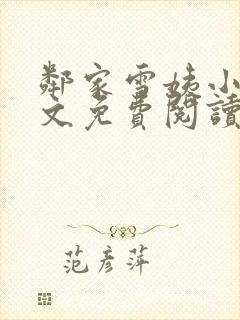 鄰家雪姨小
文免費閱讀
范彥萍